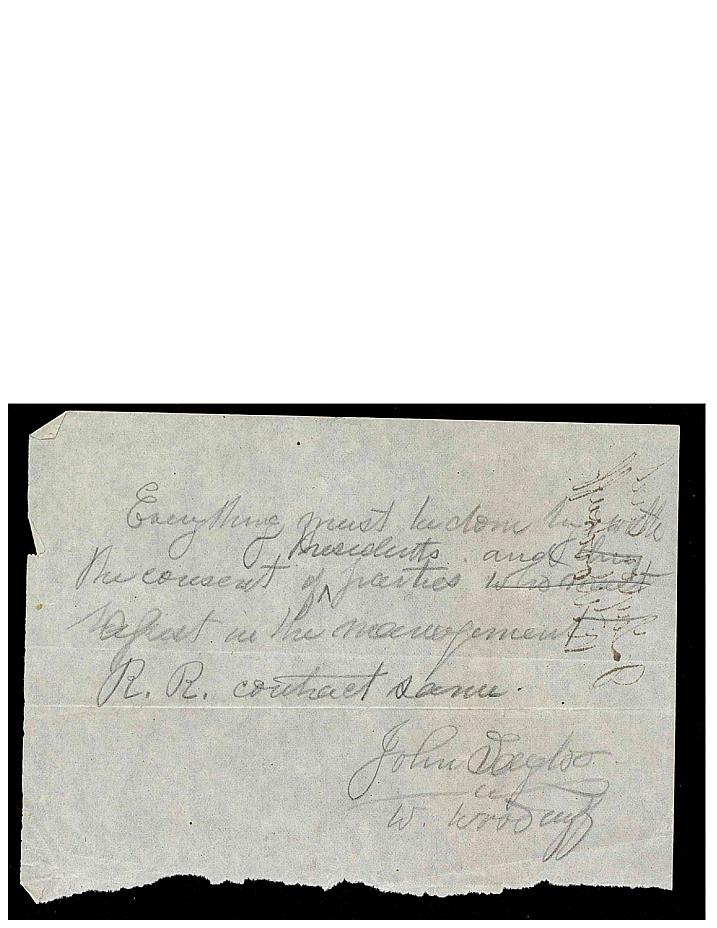 Everything must be done by & with
Presidents and they
the consent of parties who must
assist in the management
R. R. contract same.
John Taylor
W. Woodruff